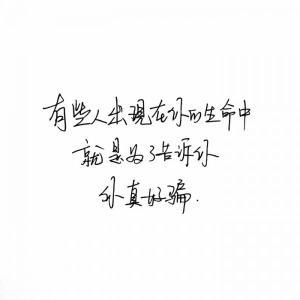 有些人出现在你的生命中
就是为了告诉你
你真好骗.